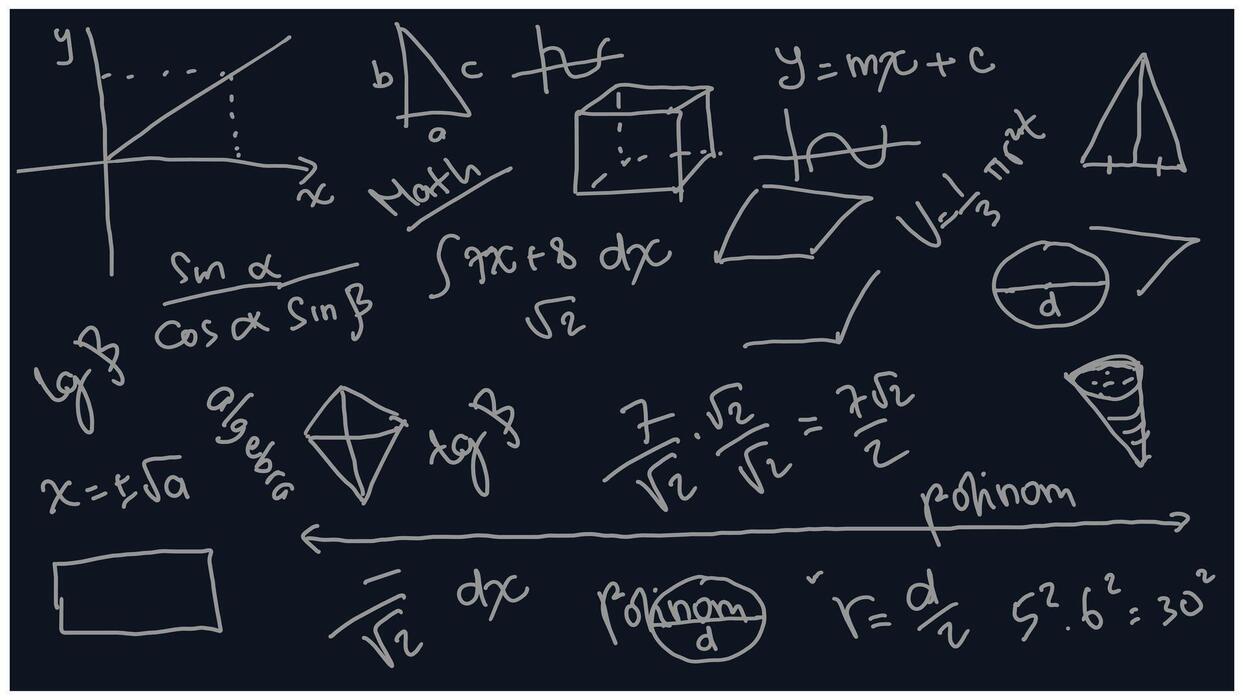 y
x
b
c
a
Math
y = mx + c
V = 1/3 πr²t
sin α / cos α sin β
∫ 7x + 8 dx
√2
d
tg β
algebra
tg β
7/√2 . √2/√2 = 7√2/2
x = ±√a
polinom
√2
dx
polinom
d
r = d/2
5² . 6² = 30²